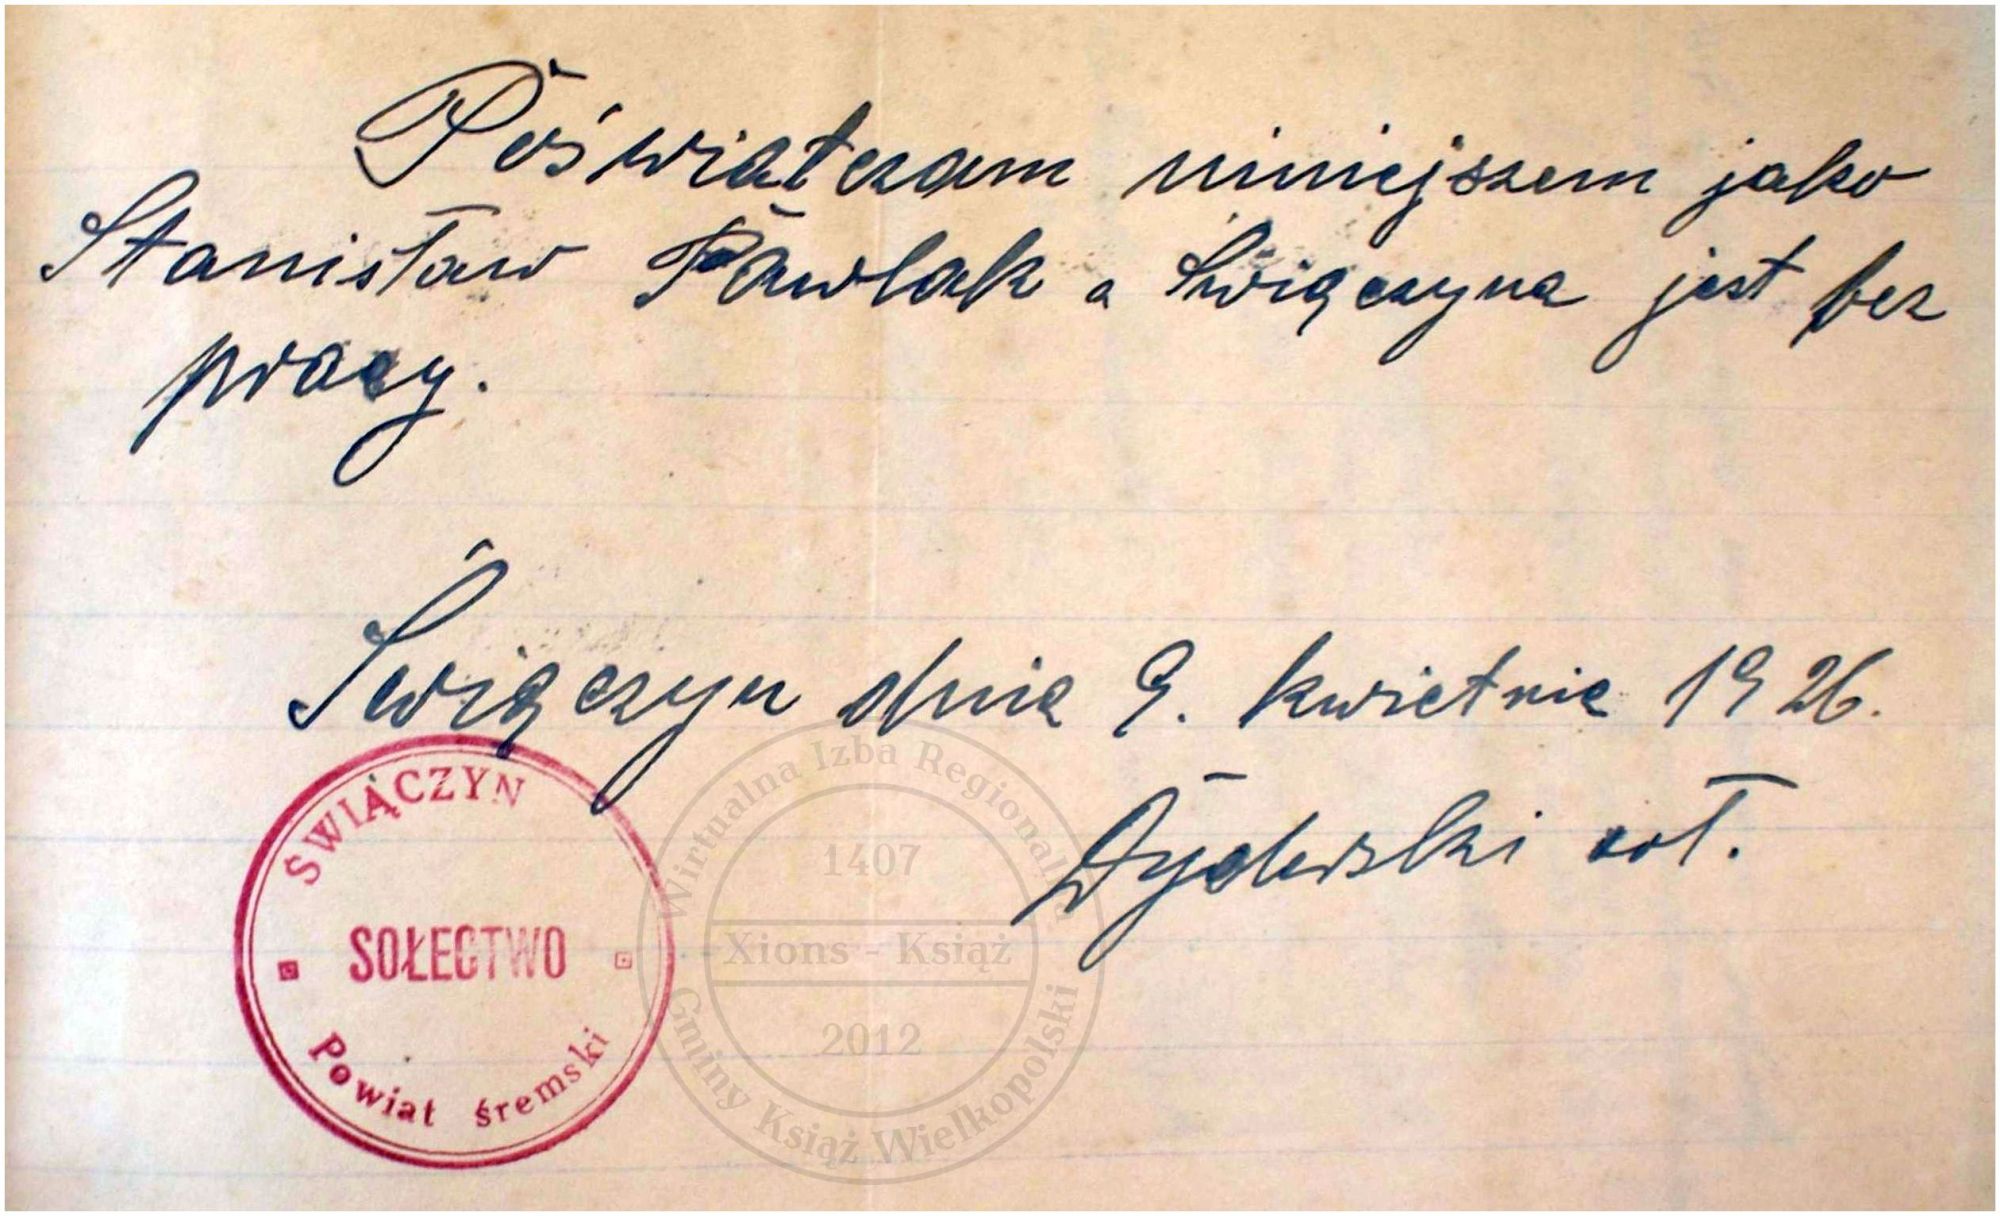 Poświatczam niniejszem jako
Stanisław Pawlak z Świączyna jest bez
pracy.
Świączyn dnia 9. kwietnia 1926.
soł.
ŚWIĄCZYN
SOŁECTWO
Powiat śremski
Wirtualna Izba Regionalna
1407
Xions - Książ
2012
Gminy Książ Wielkopolski